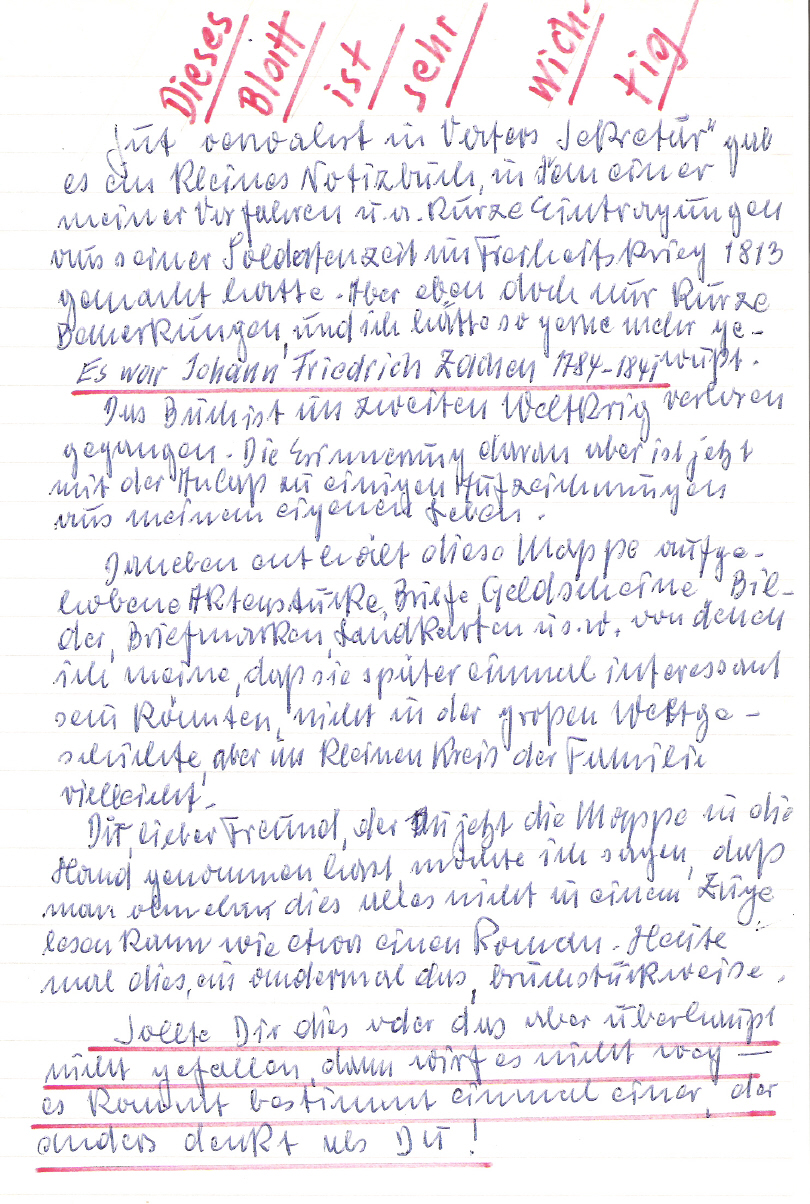 Dieses Blatt ist sehr wich-tig
Gut verwahrt in Vaters Sekretär" gab
es ein kleines Notizbuch, in dem einer
meiner Vorfahren u.a. kurze Eintragungen
aus seiner Soldatenzeit im Freiheitskrieg 1813
gemacht hatte. Aber eben doch nur kurze
Bemerkungen, und ich hätte so gerne mehr ge-
wußt.
Es war Johann Friedrich 1784-1841
Das Buch ist im zweiten Weltkrig verloren
gegangen. Die Erinnerung daran aber ist jetzt
mit der Anlaß zu einigen Aufzeichnungen
aus meinem eigenen Leben.
Daneben enthält diese Mappe aufge-
hobene Aktenstücke, Briefe, Geldscheine, Bil-
der, Briefmarken, Landkarten u.s.w. von denen
ich meine, daß sie später einmal interessant
sein könnten, nicht in der großen Weltge-
schichte, aber im kleinen Kreis der Familie
vielleicht.
Dir, lieber Freund, der Du jetzt die Mappe in die
Hand genommen hast, möchte ich sagen, daß
man ohnehin dies alles nicht in einem Zuge
lesen kann wie etwa einen Roman. Heute
mal dies, ein andermal das, bruchstückweise.
Sollte Dir dies oder das aber überhaupt
nicht gefallen, dann wirf es nicht weg —
es kommt bestimmt einmal einer, der
anders denkt als Du!